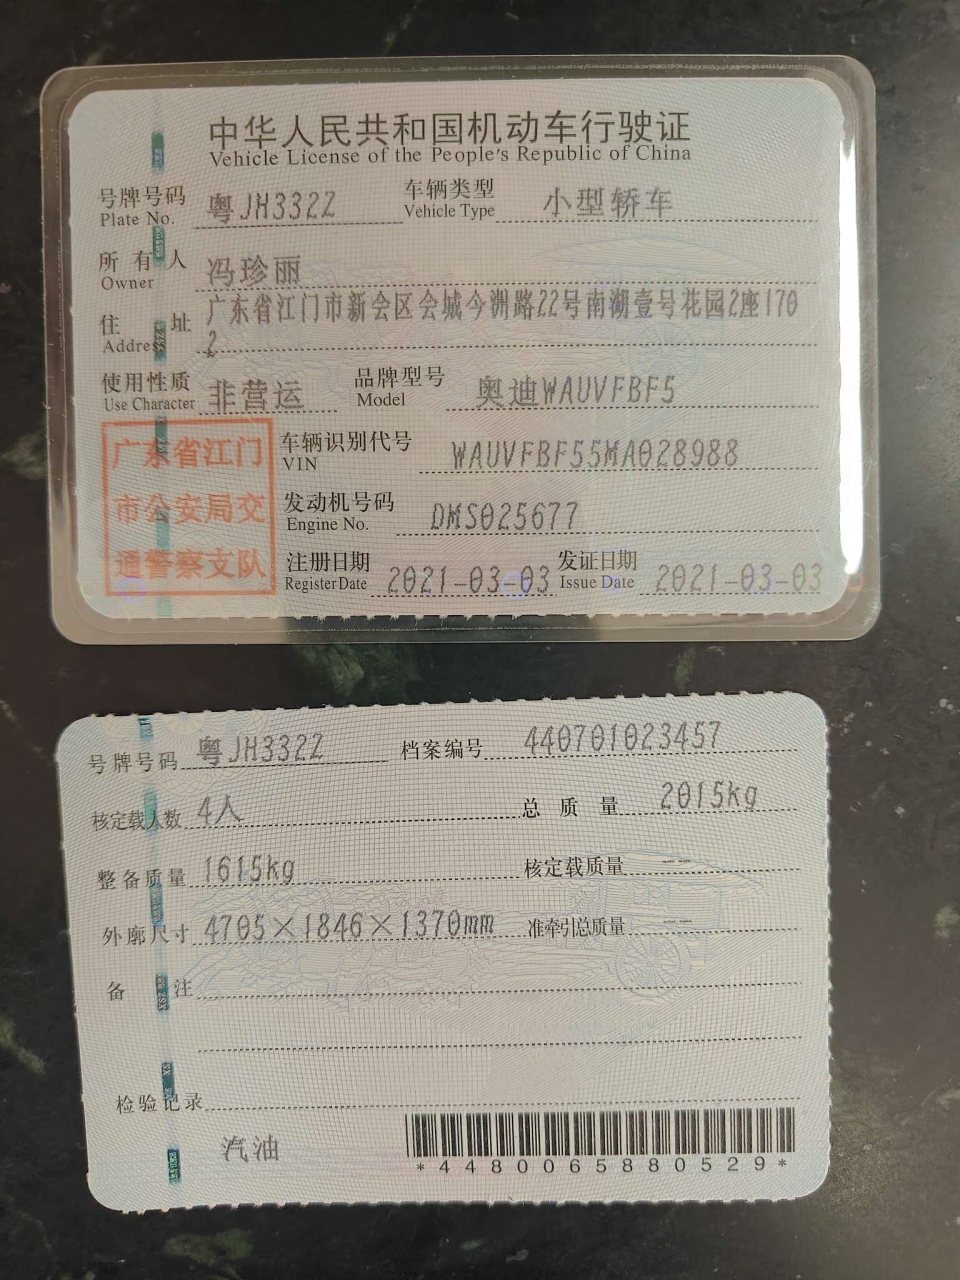 中华人民共和国机动车行驶证
Vehicle License of the People's Republic of China
号牌号码 粤JH332Z 车辆类型 小型轿车
Plate No. Vehicle Type
所有人 冯珍丽
Owner
住址 广东省江门市新会区会城今洲路22号南湖壹号花园2座170
Address 2
使用性质 非营运 品牌型号 奥迪WAUVFBF5
Use Character Model
广东省江门
市公安局交
通警察支队
车辆识别代号 WAUVFBF55MA028988
VIN
发动机号码 DMS025677
Engine No.
注册日期 2021-03-03 发证日期 2021-03-03
Register Date Issue Date
号牌号码 粤JH332Z 档案编号 440701023457
核定载人数 4人 总质量 2015kg
整备质量 1615kg 核定载质量 --- ---
外廓尺寸 4705×1846×1370mm 准牵引总质量 --- ---
备注
检验记录
汽油
*4480065880529*